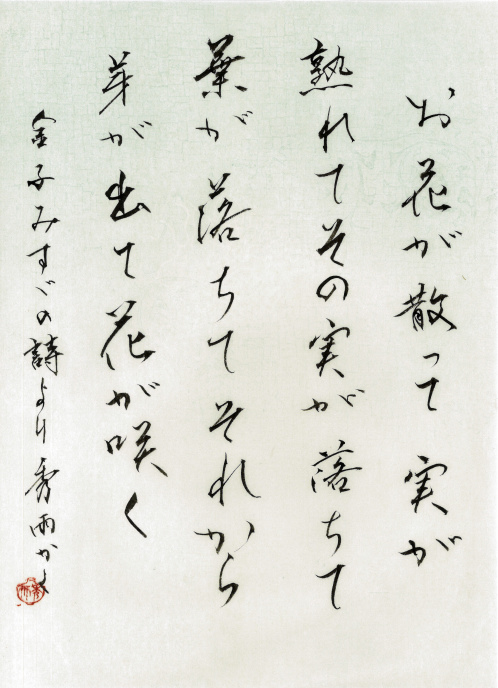 お花が散って 実が
熟れてその実が落ちて
葉が落ちてそれから
芽が出て花が咲く
金子みすゞの詩より 秀雨かく